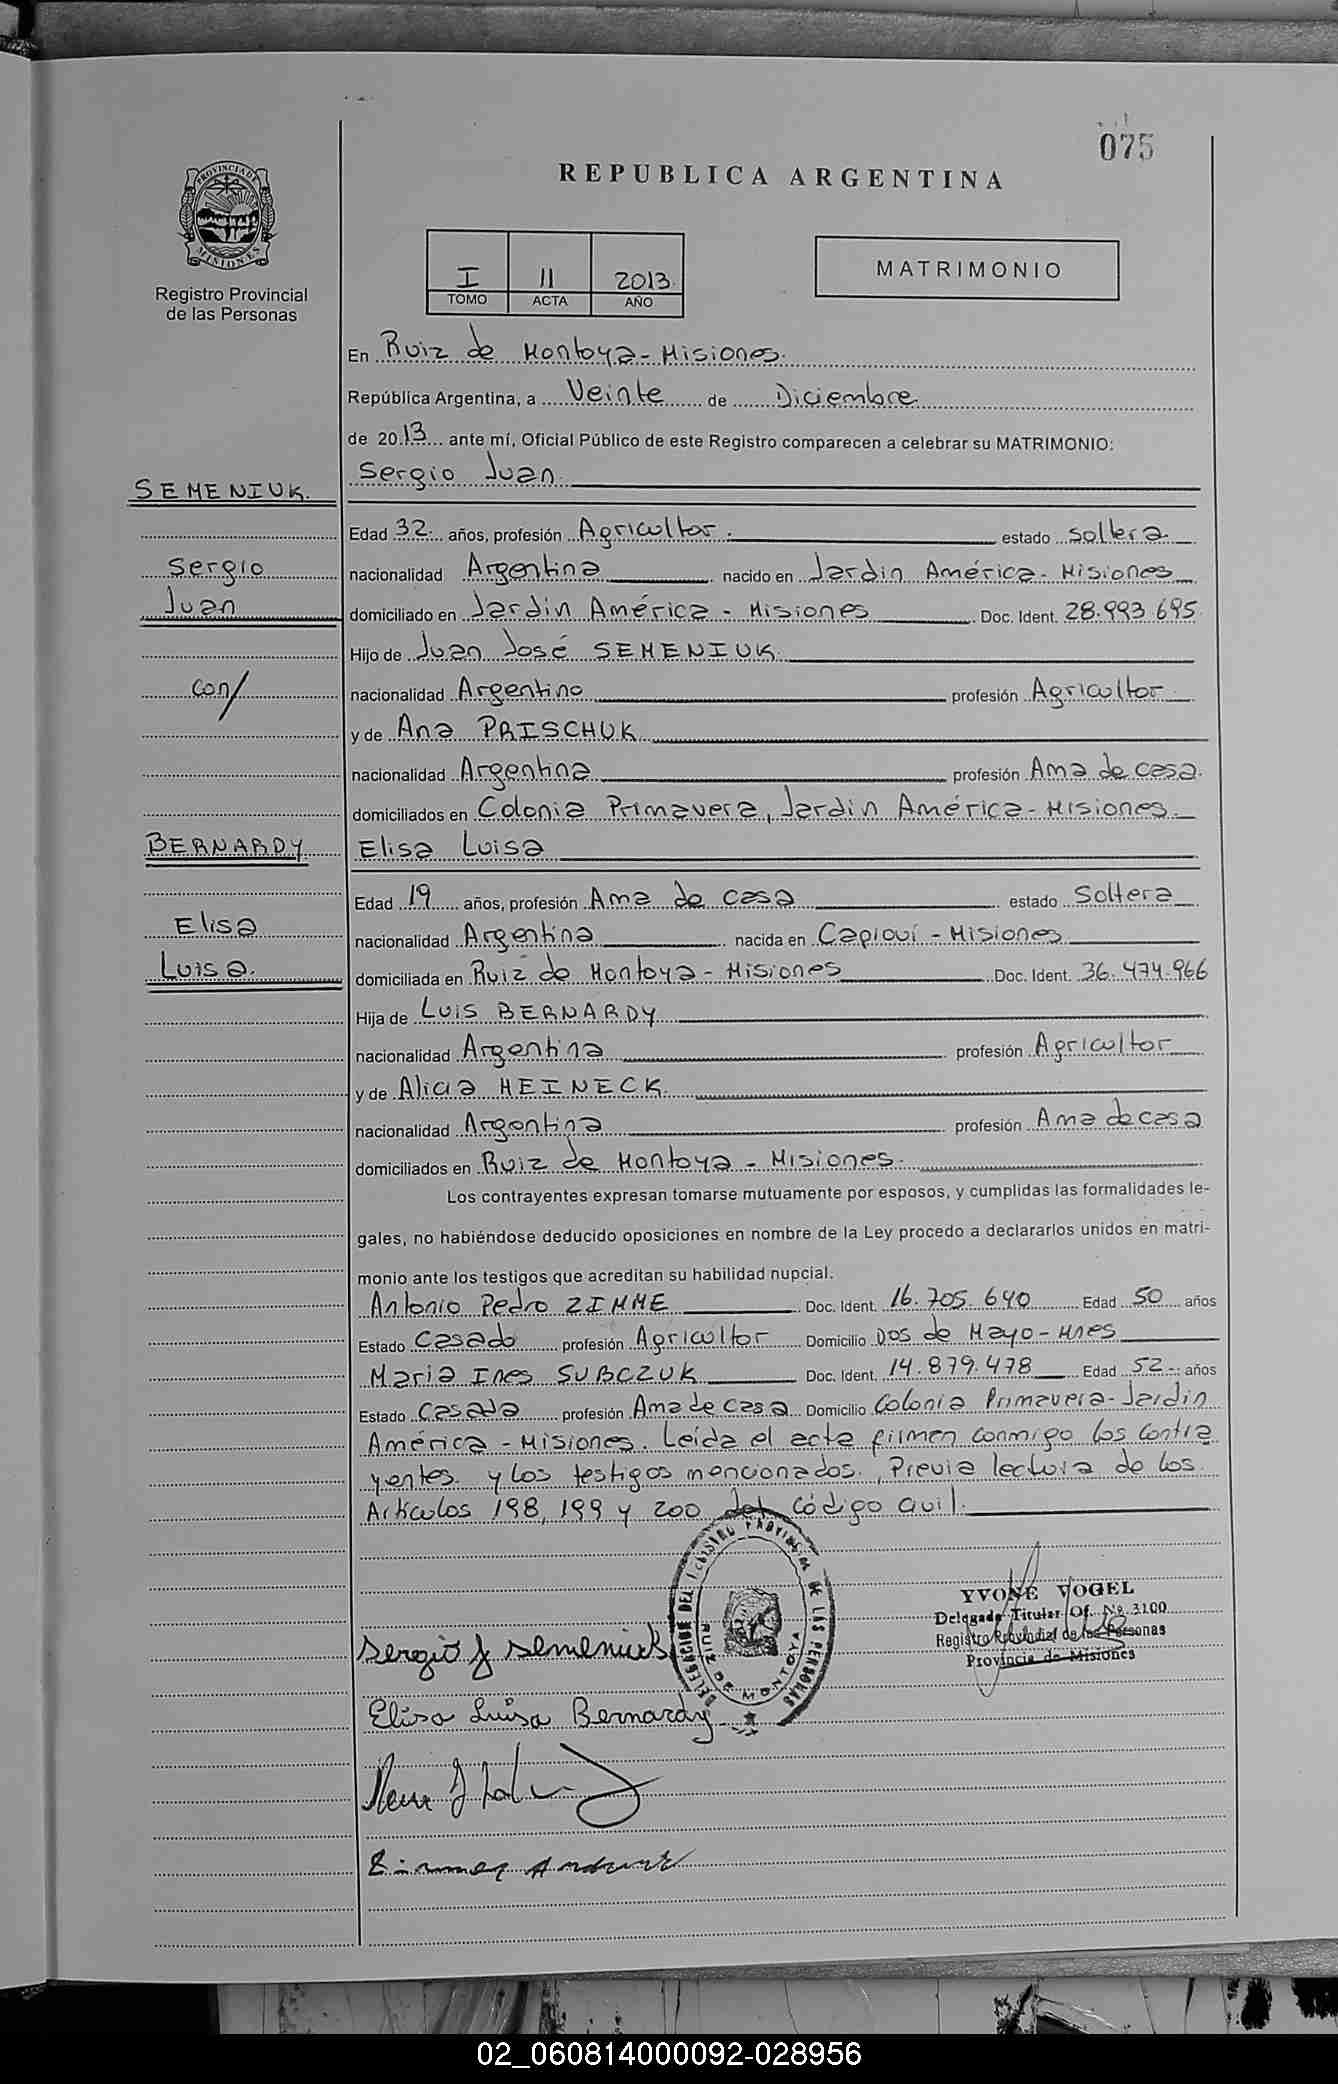 075
REPUBLICA ARGENTINA
PROVINCIA DE MISIONES
Registro Provincial
de las Personas
I 11 2013
TOMO ACTA AÑO
MATRIMONIO
En Ruiz de Montoya - Misiones.
República Argentina, a Veinte de Diciembre
de 2013 ante mí, Oficial Público de este Registro comparecen a celebrar su MATRIMONIO:
SEMENIUK. Sergio Juan
Edad 32 años, profesión Agricultor. estado soltera
Sergio nacionalidad Argentina nacido en Jardin América - Misiones
Juan domiciliado en Jardin América - Misiones Doc. Ident. 28.993.695
Hijo de Juan José SEMENIUK.
con/ nacionalidad Argentino profesión Agricultor
y de Ana PRISCHUK
nacionalidad Argentina profesión Ama de casa.
domiciliados en Colonia Primavera, Jardin América - Misiones.
BERNARDY Elisa Luisa
Edad 19 años, profesión Ama de casa estado Soltera
Elisa nacionalidad Argentina nacida en Capiovi - Misiones
Luisa. domiciliada en Ruiz de Montoya - Misiones Doc. Ident. 36.474.966
Hija de Luis BERNARDY
nacionalidad Argentina profesión Agricultor
y de Alicia HEINECK
nacionalidad Argentina profesión Ama de casa
domiciliados en Ruiz de Montoya - Misiones.
Los contrayentes expresan tomarse mutuamente por esposos, y cumplidas las formalidades le-
gales, no habiéndose deducido oposiciones en nombre de la Ley procedo a declararlos unidos en matri-
monio ante los testigos que acreditan su habilidad nupcial.
Antonio Pedro ZIMME Doc. Ident. 16.705.640 Edad 50 años
Estado Casado profesión Agricultor Domicilio Dos de Mayo - Mnes
Maria Ines SUBCZUK Doc. Ident. 14.879.478 Edad 52 años
Estado Casada profesión Ama de casa Domicilio Colonia Primavera - Jardin
América - Misiones. Leída el acta firman conmigo los contra
yentes y los testigos mencionados. Previa lectura de los
Artículos 198, 199 y 200 del código civil.
DELEGACION DEL REGISTRO PROVINCIAL DE LAS PERSONAS
RUIZ DE MONTOYA
YVONE VOGEL
Delegada Titular Of. Nº 3100
Registro Provincial de las Personas
Provincia de Misiones
Sergio J Semeniuk
Elisa Luisa Bernardy
02_060814000092-028956